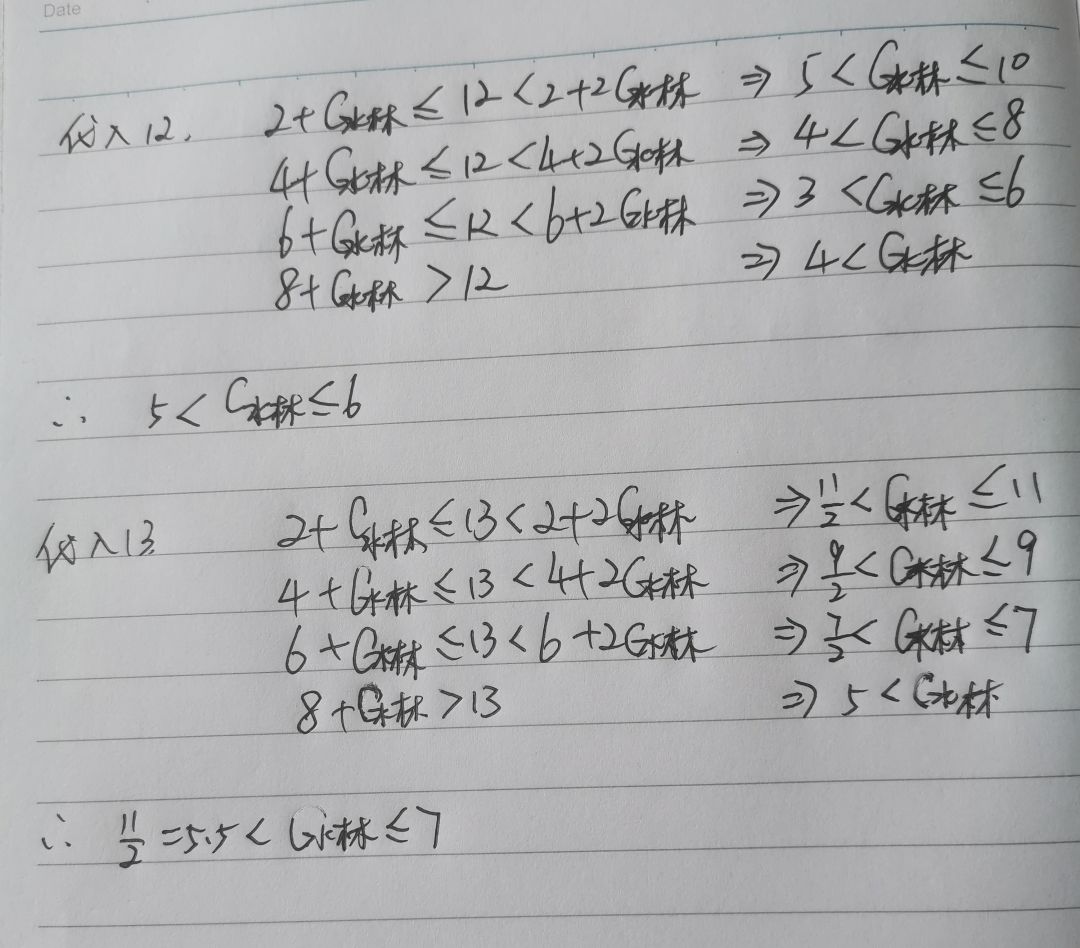 Date
代入12. 2+G水林≤12<2+2G水林 ⇒ 5<G水林≤10
4+G水林≤12<4+2G水林 ⇒ 4<G水林≤8
6+G水林≤12<6+2G水林 ⇒ 3<G水林≤6
8+G水林>12 ⇒ 4<G水林
∴ 5<G水林≤6
代入13. 2+G水林≤13<2+2G水林 ⇒ 11/2<G水林≤11
4+G水林≤13<4+2G水林 ⇒ 9/2<G水林≤9
6+G水林≤13<6+2G水林 ⇒ 7/2<G水林≤7
8+G水林>13 ⇒ 5<G水林
∴ 11/2=5.5<G水林≤7